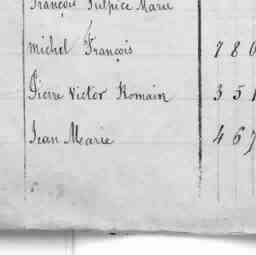 François Sulpice Marie
michel François 780
Pierre Victor Romain 351
Jean Marie 467